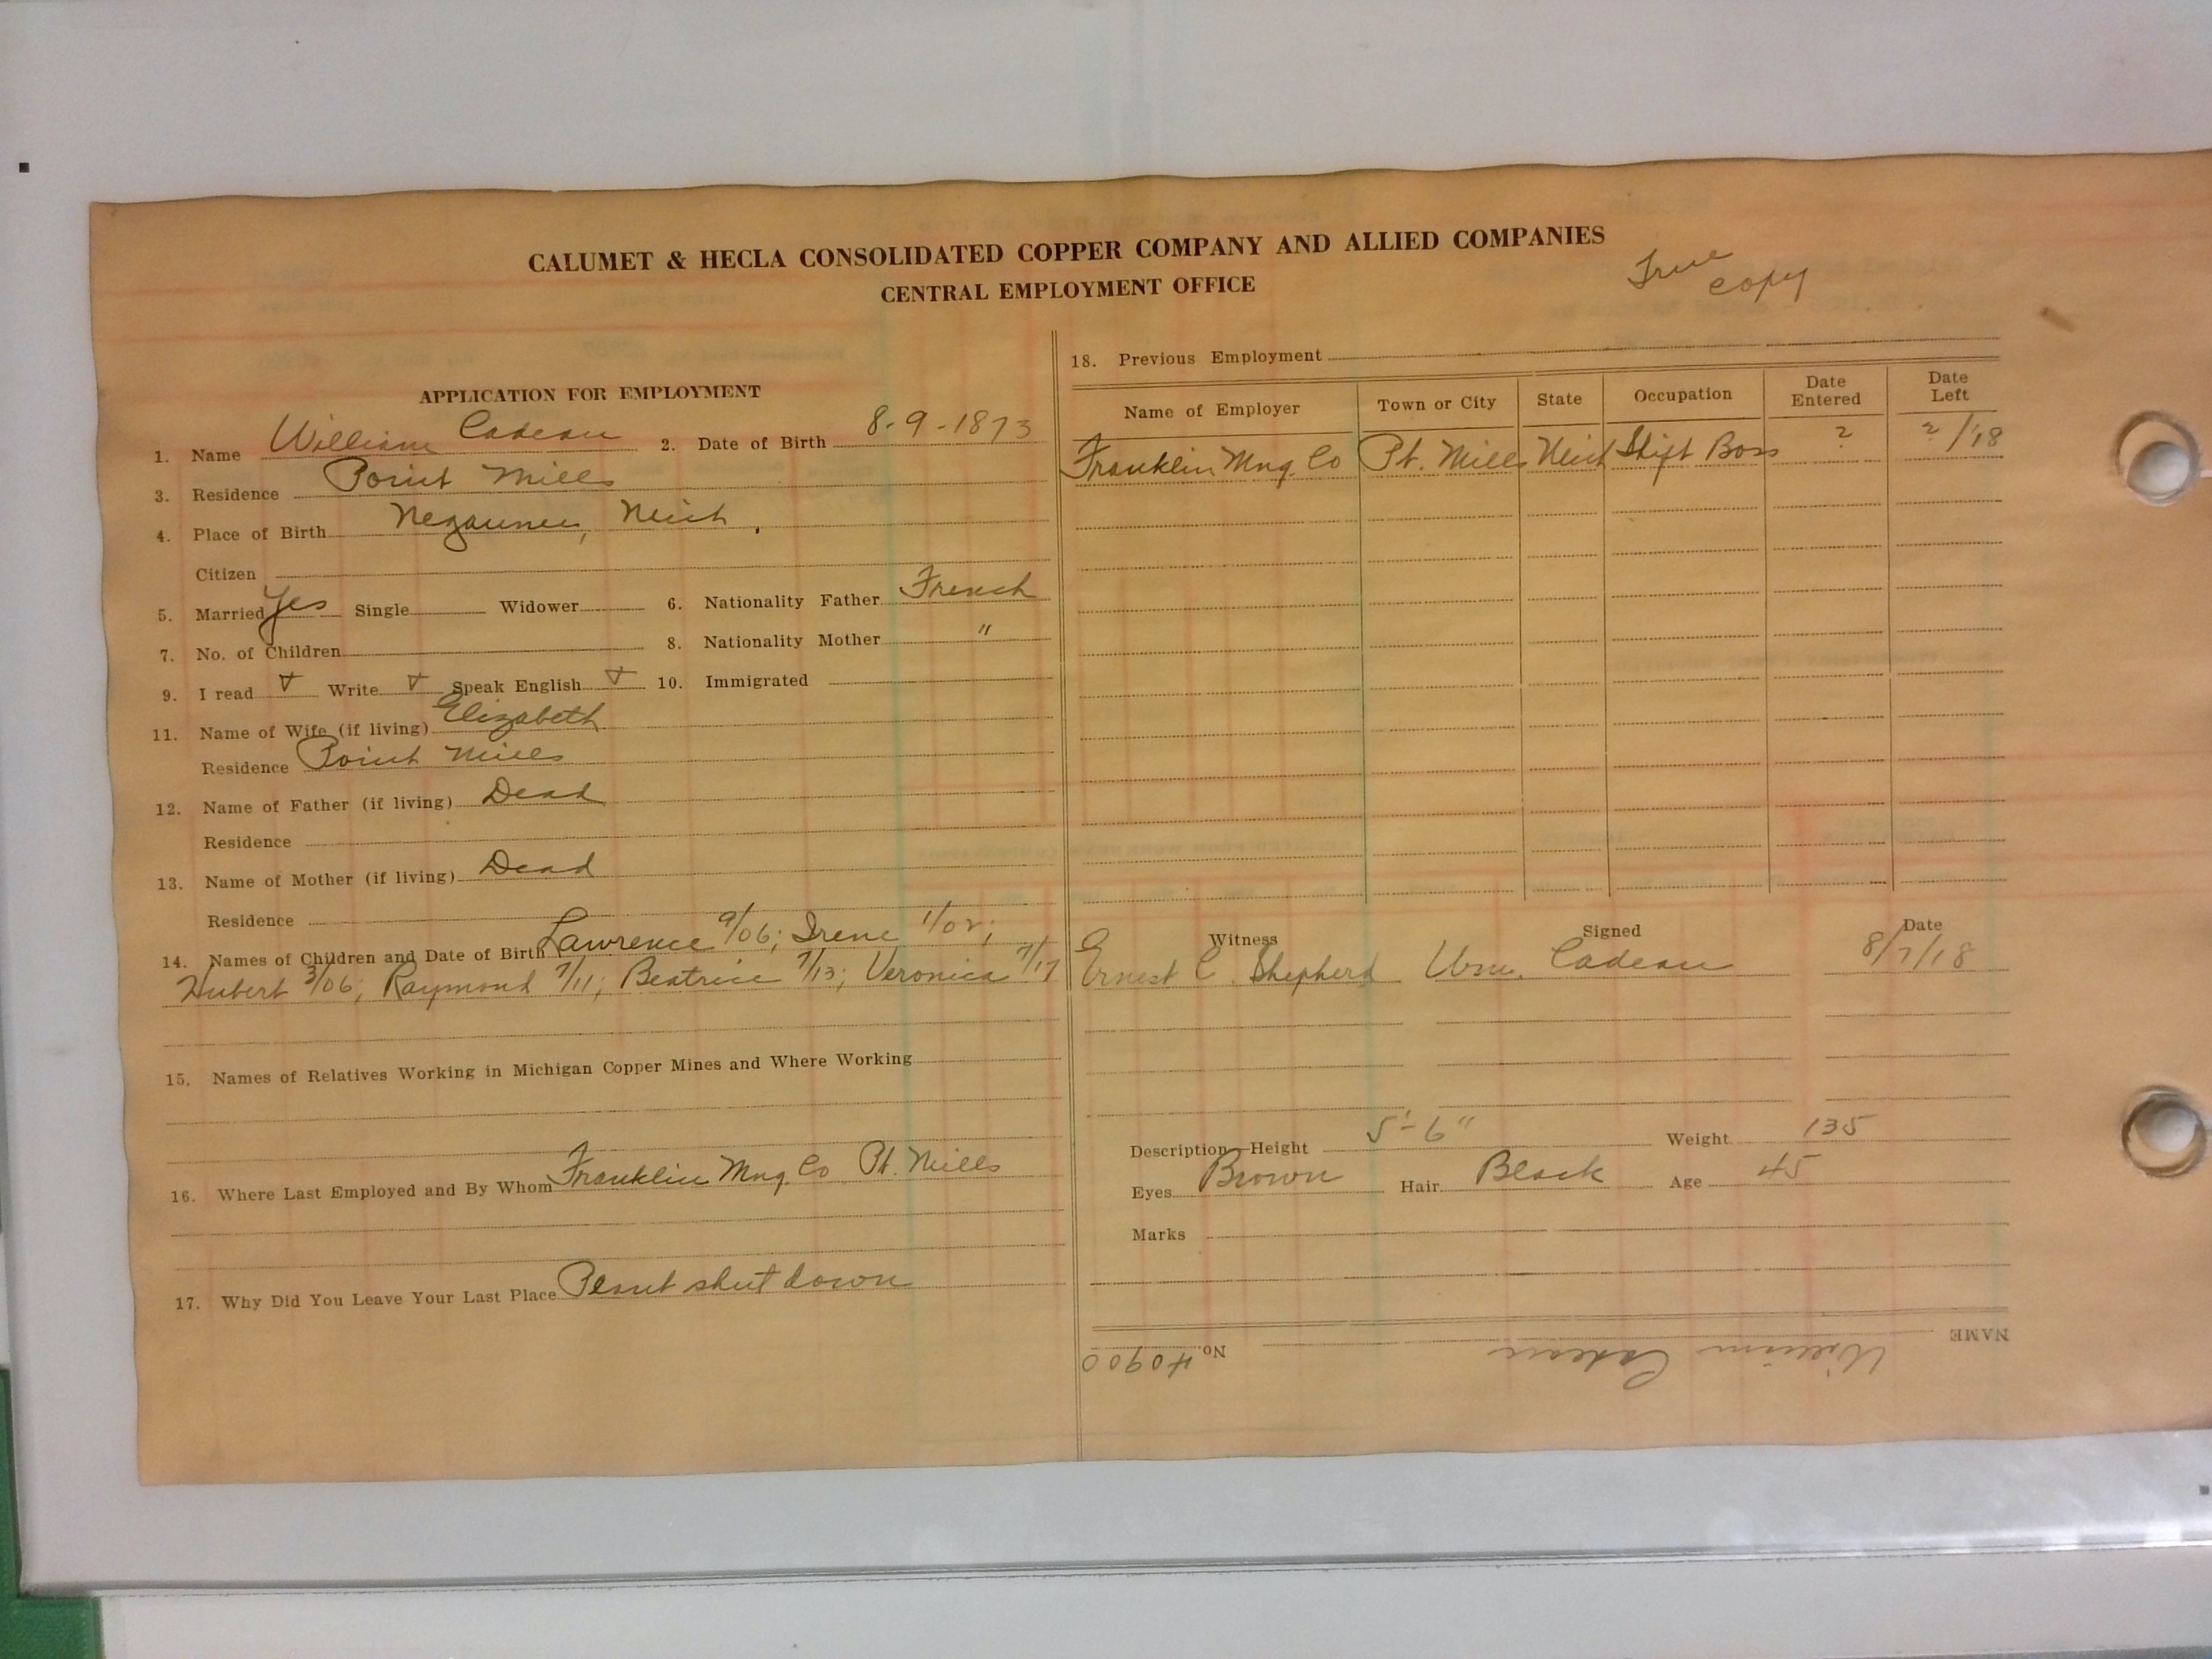 CALUMET & HECLA CONSOLIDATED COPPER COMPANY AND ALLIED COMPANIES
CENTRAL EMPLOYMENT OFFICE
True copy
APPLICATION FOR EMPLOYMENT
1. Name William Cadeau 2. Date of Birth 8-9-1873
3. Residence Point Mills
4. Place of Birth Negaunee, Mich.
Citizen
5. Married Yes Single Widower 6. Nationality Father French
7. No. of Children 8. Nationality Mother "
9. I read √ Write √ Speak English √ 10. Immigrated
11. Name of Wife (if living) Elizabeth
Residence Point Mills
12. Name of Father (if living) Dead
Residence
13. Name of Mother (if living) Dead
Residence
14. Names of Children and Date of Birth Lawrence 9/06; Irene 1/02;
Hubert 3/06; Raymond 7/11; Beatrice 7/13; Veronica 7/17
15. Names of Relatives Working in Michigan Copper Mines and Where Working
16. Where Last Employed and By Whom Franklin Mng. Co Pt. Mills
17. Why Did You Leave Your Last Place Plant shut down
18. Previous Employment
Name of Employer Town or City State Occupation Date Entered Date Left
Franklin Mng. Co Pt. Mills Mich Shift Boss ? ?/18
Witness Signed Date
Ernest C. Shepherd Wm. Cadeau 8/7/18
Description—Height 5'-6" Weight 135
Eyes Brown Hair Black Age 45
Marks
NAME William Cadeau No. 40900